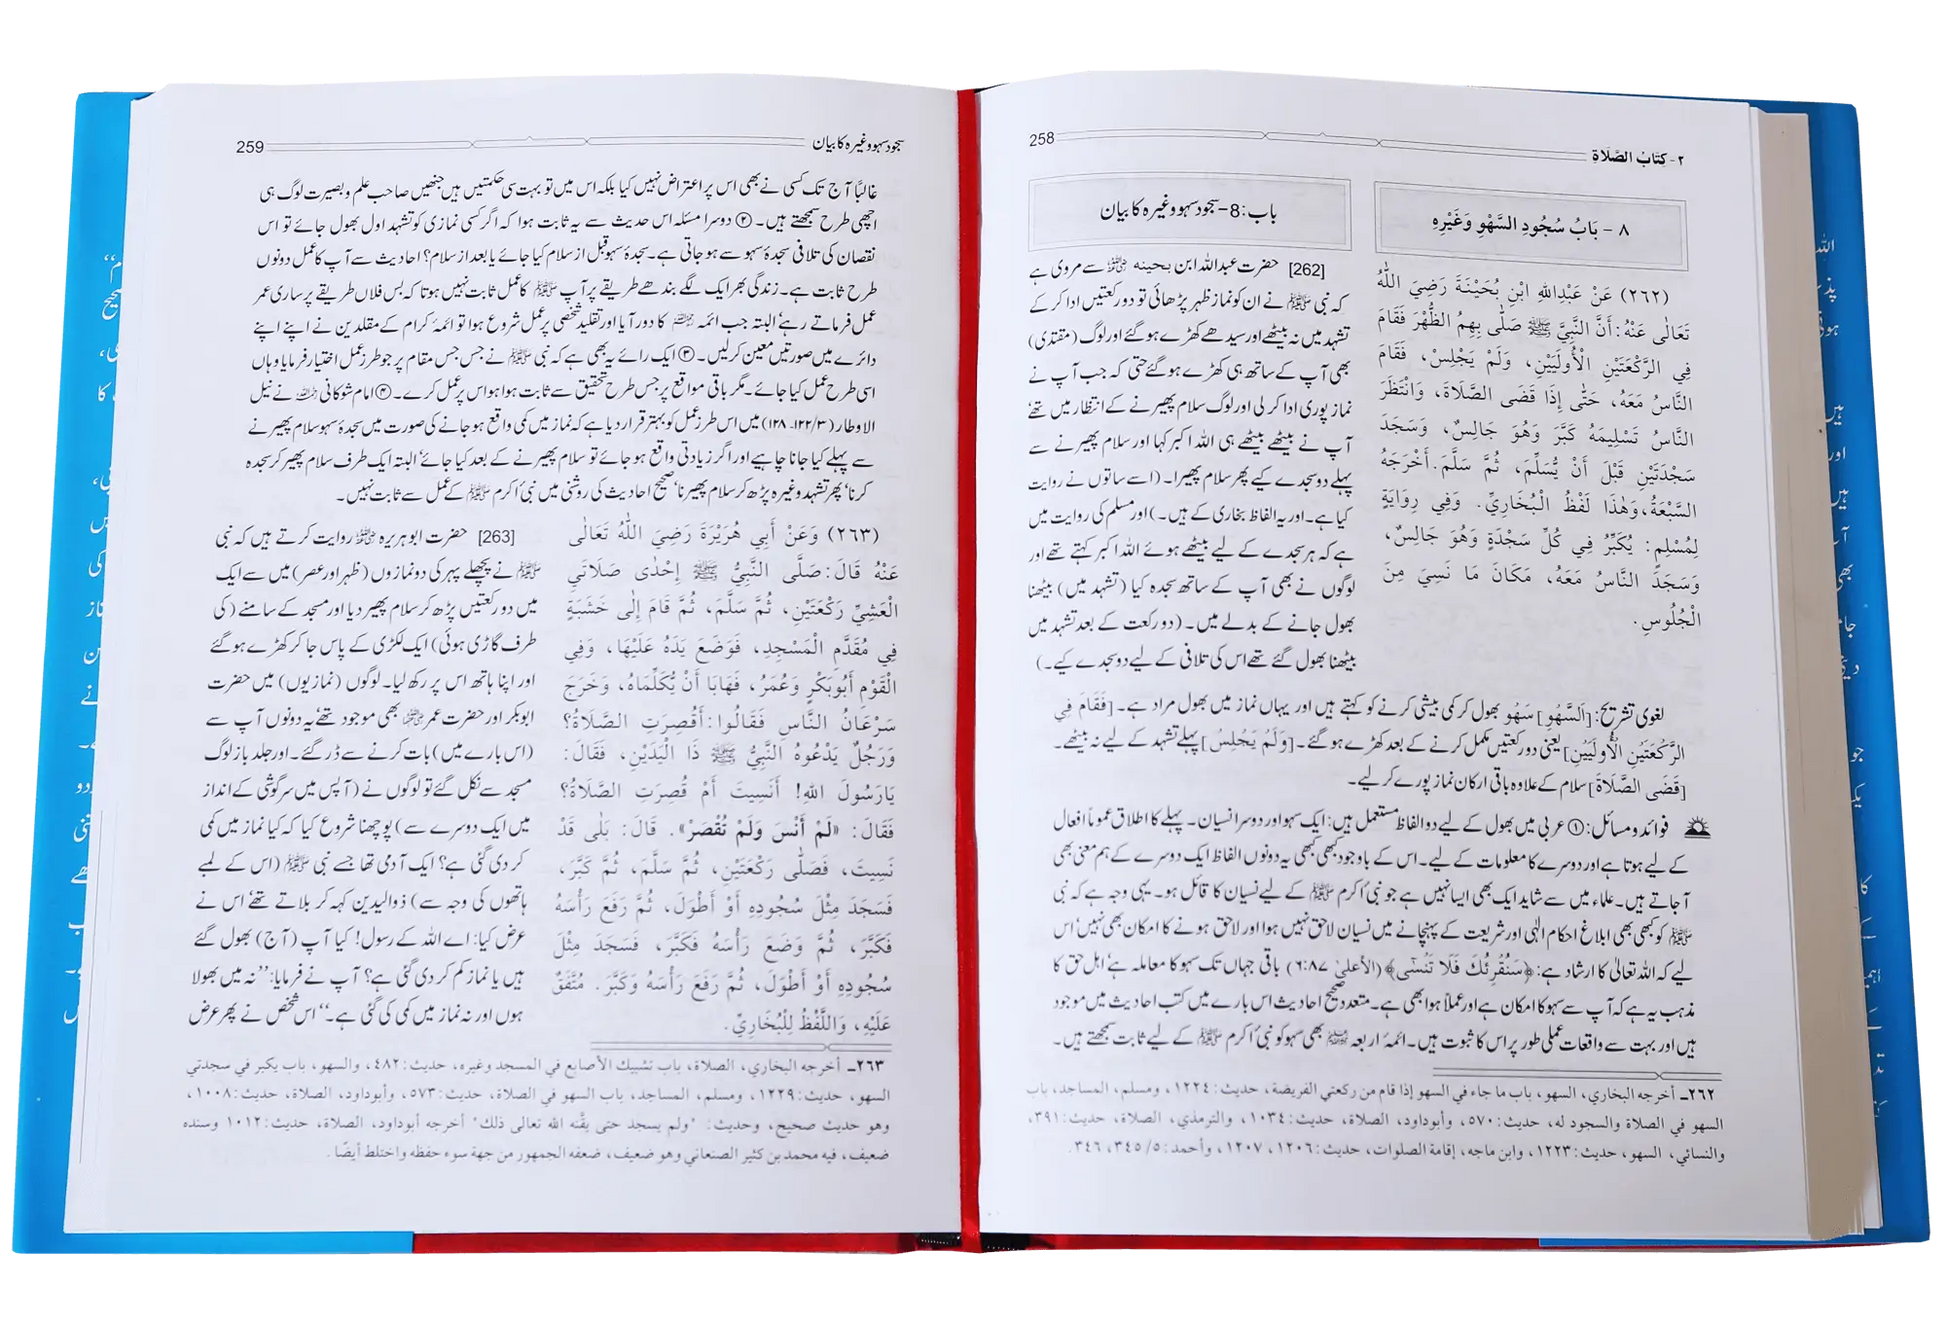 ٢- كتَابُ الصَّلَاةِ 258
٨ - بَابُ سُجُودِ السَّهْوِ وَغَيْرِهِ
(٢٦٢) عَنْ عَبْدِاللهِ ابْنِ بُحَيْنَةَ رَضِيَ اللّٰهُ
تَعَالٰى عَنْهُ: أَنَّ النَّبِيَّ ﷺ صَلّٰى بِهِمُ الظُّهْرَ فَقَامَ
فِي الرَّكْعَتَيْنِ الْأُولَيَيْنِ، وَلَمْ يَجْلِسْ، فَقَامَ
النَّاسُ مَعَهُ، حَتّٰى إِذَا قَضَى الصَّلَاةَ، وَانْتَظَرَ
النَّاسُ تَسْلِيمَهُ كَبَّرَ وَهُوَ جَالِسٌ، وَسَجَدَ
سَجْدَتَيْنِ قَبْلَ أَنْ يُسَلِّمَ، ثُمَّ سَلَّمَ. أَخْرَجَهُ
السَّبْعَةُ، وَهٰذَا لَفْظُ الْبُخَارِيِّ. وَفِي رِوَايَةٍ
لِمُسْلِمٍ: يُكَبِّرُ فِي كُلِّ سَجْدَةٍ وَهُوَ جَالِسٌ،
وَسَجَدَ النَّاسُ مَعَهُ، مَكَانَ مَا نَسِيَ مِنَ
الْجُلُوسِ.
باب:8- سجود سہو وغیرہ کا بیان
[262] حضرت عبداللہ ابن بحینہ ؓ سے مروی ہے
کہ نبی ﷺ نے ان کو نماز ظہر پڑھائی تو دو رکعتیں ادا کر کے
تشہد میں نہ بیٹھے اور سیدھے کھڑے ہو گئے اور لوگ (مقتدی)
بھی آپ کے ساتھ ہی کھڑے ہو گئے حتی کہ جب آپ نے
نماز پوری ادا کر لی اور لوگ سلام پھیرنے کے انتظار میں تھے
آپ نے بیٹھے بیٹھے ہی اللہ اکبر کہا اور سلام پھیرنے سے
پہلے دو سجدے کیے پھر سلام پھیرا۔ (اسے ساتوں نے روایت
کیا ہے۔ اور یہ الفاظ بخاری کے ہیں۔) اور مسلم کی روایت میں
ہے کہ ہر سجدے کے لیے بیٹھے ہوئے اللہ اکبر کہتے تھے اور
لوگوں نے بھی آپ کے ساتھ سجدہ کیا (تشہد میں) بیٹھنا
بھول جانے کے بدلے میں۔ (دو رکعت کے بعد تشہد میں
بیٹھنا بھول گئے تھے اس کی تلافی کے لیے دو سجدے کیے۔)
لغوی تشریح: [اَلسَّهْوِ] سَهْو بھول کر کمی بیشی کرنے کو کہتے ہیں اور یہاں نماز میں بھول مراد ہے۔ [فَقَامَ فِي
الرَّكْعَتَيْنِ الْأُولَيَيْنِ] یعنی دو رکعتیں مکمل کرنے کے بعد کھڑے ہو گئے۔ [وَلَمْ يَجْلِسْ] پہلے تشہد کے لیے نہ بیٹھے۔
[قَضَى الصَّلَاةَ] سلام کے علاوہ باقی ارکان نماز پورے کر لیے۔
فوائد و مسائل: ① عربی میں بھول کے لیے دو الفاظ مستعمل ہیں: ایک سہو اور دوسرا نسیان۔ پہلے کا اطلاق عموماً افعال
کے لیے ہوتا ہے اور دوسرے کا معلومات کے لیے۔ اس کے باوجود کبھی کبھی یہ دونوں الفاظ ایک دوسرے کے ہم معنی بھی
آ جاتے ہیں۔ علماء میں سے شاید ایک بھی ایسا نہیں ہے جو نبیٔ اکرم ﷺ کے لیے نسیان کا قائل ہو۔ یہی وجہ ہے کہ نبی
ﷺ کو کبھی بھی ابلاغ احکام الٰہی اور شریعت کے پہنچانے میں نسیان لاحق نہیں ہوا اور لاحق ہونے کا امکان بھی نہیں، اس
لیے کہ اللہ تعالیٰ کا ارشاد ہے: ﴿سَنُقْرِئُكَ فَلَا تَنْسٰى﴾ (الأعلىٰ ٦:٨٧) باقی جہاں تک سہو کا معاملہ ہے، اہل حق کا
مذہب یہ ہے کہ آپ سے سہو کا امکان ہے اور عملاً ہوا بھی ہے۔ متعدد صحیح احادیث اس بارے میں کتب احادیث میں موجود
ہیں اور بہت سے واقعات عملی طور پر اس کا ثبوت ہیں۔ ائمہ اربعہ ؒ بھی سہو کو نبیٔ اکرم ﷺ کے لیے ثابت سمجھتے ہیں۔
٢٦٢ـ أخرجه البخاري، السهو، باب ما جاء في السهو إذا قام من ركعتي الفريضة، حديث:١٢٢٤، ومسلم، المساجد، باب
السهو في الصلاة والسجود له، حديث:٥٧٠، وأبوداود، الصلاة، حديث:١٠٣٤، والترمذي، الصلاة، حديث:٣٩١،
والنسائي، السهو، حديث:١٢٢٣، وابن ماجه، إقامة الصلوات، حديث:١٢٠٦، ١٢٠٧، وأحمد:٥/ ٣٤٥، ٣٤٦.
سجود سہو وغیرہ کا بیان 259
غالباً آج تک کسی نے بھی اس پر اعتراض نہیں کیا بلکہ اس میں تو بہت سی حکمتیں ہیں جنھیں صاحب علم و بصیرت لوگ ہی
اچھی طرح سمجھتے ہیں۔ ② دوسرا مسئلہ اس حدیث سے یہ ثابت ہوا کہ اگر کسی نمازی کو تشہد اول بھول جائے تو اس
نقصان کی تلافی سجدۂ سہو سے ہو جاتی ہے۔ سجدۂ سہو قبل از سلام کیا جائے یا بعد از سلام؟ احادیث سے آپ کا عمل دونوں
طرح ثابت ہے۔ زندگی بھر ایک لگے بندھے طریقے پر آپ ﷺ کا عمل ثابت نہیں ہوتا کہ بس فلاں طریقے پر ساری عمر
عمل فرماتے رہے، البتہ جب ائمہ ؒ کا دور آیا اور تقلید شخصی پر عمل شروع ہوا تو ائمۂ کرام کے مقلدین نے اپنے اپنے
دائرے میں صورتیں معین کر لیں۔ ③ ایک رائے یہ بھی ہے کہ نبی ﷺ نے جس جس مقام پر جو طرز عمل اختیار فرمایا وہاں
اسی طرح عمل کیا جائے۔ مگر باقی مواقع پر جس طرح تحقیق سے ثابت ہوا ہو اس پر عمل کرے۔ ④ امام شوکانی ؒ نے نیل
الاوطار (٣/ ١٢٢۔١٢٨) میں اس طرز عمل کو بہتر قرار دیا ہے کہ نماز میں کمی واقع ہو جانے کی صورت میں سجدۂ سہو سلام پھیرنے
سے پہلے کیا جانا چاہیے اور اگر زیادتی واقع ہو جائے تو سلام پھیرنے کے بعد کیا جائے، البتہ ایک طرف سلام پھیر کر سجدہ
کرنا، پھر تشہد وغیرہ پڑھ کر سلام پھیرنا، صحیح احادیث کی روشنی میں نبیٔ اکرم ﷺ کے عمل سے ثابت نہیں۔
(٢٦٣) وَعَنْ أَبِي هُرَيْرَةَ رَضِيَ اللّٰهُ تَعَالٰى
عَنْهُ قَالَ: صَلَّى النَّبِيُّ ﷺ إِحْدٰى صَلَاتَيِ
الْعَشِيِّ رَكْعَتَيْنِ، ثُمَّ سَلَّمَ، ثُمَّ قَامَ إِلٰى خَشَبَةٍ
فِي مُقَدَّمِ الْمَسْجِدِ، فَوَضَعَ يَدَهُ عَلَيْهَا، وَفِي
الْقَوْمِ أَبُوبَكْرٍ وَعُمَرُ، فَهَابَا أَنْ يُكَلِّمَاهُ، وَخَرَجَ
سَرْعَانُ النَّاسِ فَقَالُوا: أَقُصِرَتِ الصَّلَاةُ؟
وَرَجُلٌ يَدْعُوهُ النَّبِيُّ ﷺ ذَا الْيَدَيْنِ، فَقَالَ:
يَارَسُولَ اللهِ! أَنَسِيتَ أَمْ قُصِرَتِ الصَّلَاةُ؟
فَقَالَ: «لَمْ أَنْسَ وَلَمْ تُقْصَرْ». قَالَ: بَلٰى قَدْ
نَسِيتَ، فَصَلّٰى رَكْعَتَيْنِ، ثُمَّ سَلَّمَ، ثُمَّ كَبَّرَ،
فَسَجَدَ مِثْلَ سُجُودِهِ أَوْ أَطْوَلَ، ثُمَّ رَفَعَ رَأْسَهُ
فَكَبَّرَ، ثُمَّ وَضَعَ رَأْسَهُ فَكَبَّرَ، فَسَجَدَ مِثْلَ
سُجُودِهِ أَوْ أَطْوَلَ، ثُمَّ رَفَعَ رَأْسَهُ وَكَبَّرَ. مُتَّفَقٌ
عَلَيْهِ، وَاللَّفْظُ لِلْبُخَارِيِّ.
[263] حضرت ابوہریرہ ؓ روایت کرتے ہیں کہ نبی
ﷺ نے پچھلے پہر کی دو نمازوں (ظہر اور عصر) میں سے ایک
میں دو رکعتیں پڑھ کر سلام پھیر دیا اور مسجد کے سامنے (کی
طرف گاڑی ہوئی) ایک لکڑی کے پاس جا کر کھڑے ہو گئے
اور اپنا ہاتھ اس پر رکھ لیا۔ لوگوں (نمازیوں) میں حضرت
ابوبکر اور حضرت عمر ؓ بھی موجود تھے، یہ دونوں آپ سے
(اس بارے میں) بات کرنے سے ڈر گئے۔ اور جلد باز لوگ
مسجد سے نکل گئے تو لوگوں نے (آپس میں سرگوشی کے انداز
میں ایک دوسرے سے) پوچھنا شروع کیا کہ کیا نماز میں کمی
کر دی گئی ہے؟ ایک آدمی تھا جسے نبی ﷺ (اس کے لمبے
ہاتھوں کی وجہ سے) ذوالیدین کہہ کر بلاتے تھے، اس نے
عرض کیا: اے اللہ کے رسول! کیا آپ (آج) بھول گئے
ہیں یا نماز کم کر دی گئی ہے؟ آپ نے فرمایا: ”نہ میں بھولا
ہوں اور نہ نماز میں کمی کی گئی ہے۔“ اس شخص نے پھر عرض
٢٦٣ـ أخرجه البخاري، الصلاة، باب تشبيك الأصابع في المسجد وغيره، حديث:٤٨٢، والسهو، باب يكبر في سجدتي
السهو، حديث:١٢٢٩، ومسلم، المساجد، باب السهو في الصلاة، حديث:٥٧٣، وأبوداود، الصلاة، حديث:١٠٠٨،
وهو حديث صحيح، وحديث: "ولم يسجد حتى يقَّنه الله تعالى ذلك" أخرجه أبوداود، الصلاة، حديث:١٠١٢ وسنده
ضعيف، فيه محمد بن كثير الصنعاني وهو ضعيف، ضعفه الجمهور من جهة سوء حفظه واختلط أيضًا.